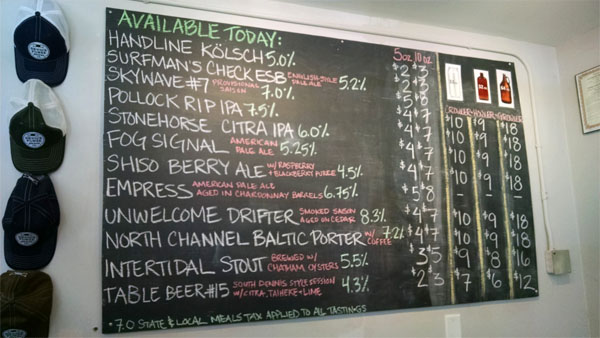 AVAILABLE TODAY:
5oz 10oz
CROWLER HOWLER GROWLER
HANDLINE KÖLSCH 5.0% $2 $3
SURFMAN'S CHECK ESB ENGLISH-STYLE PALE ALE 5.2% $2 $3
SKYWAVE #7 PROVISIONAL SAISON 7.0% $5 $8
POLLOCK RIP IPA 7.5% $4 $7
STONEHORSE CITRA IPA 6.0% $4 $7 $10 $9 $18
FOG SIGNAL AMERICAN PALE ALE 5.25% $4 $7 $10 $9 $18
SHISO BERRY ALE W/ RASPBERRY & BLACKBERRY PUREE 4.5% $4 $7 $10 $9 $18
EMPRESS AMERICAN PALE ALE AGED IN CHARDONNAY BARRELS 6.75% $5 $8 — — —
UNWELCOME DRIFTER SMOKED SAISON AGED ON CEDAR 8.3% $4 $7 $10 $9 $18
NORTH CHANNEL BALTIC PORTER W/ COFFEE 7.2% $4 $7 $10 $9 $18
INTERTIDAL STOUT BREWED W/ CHATHAM OYSTERS 5.5% $3 $5 $9 $8 $16
TABLE BEER #15 SOUTH DENNIS STYLE SESSION W/ CITRA, TAIHEKE & LIME 4.3% $2 $3 $7 $6 $12
* 7.0 STATE & LOCAL MEALS TAX APPLIED TO ALL TASTINGS